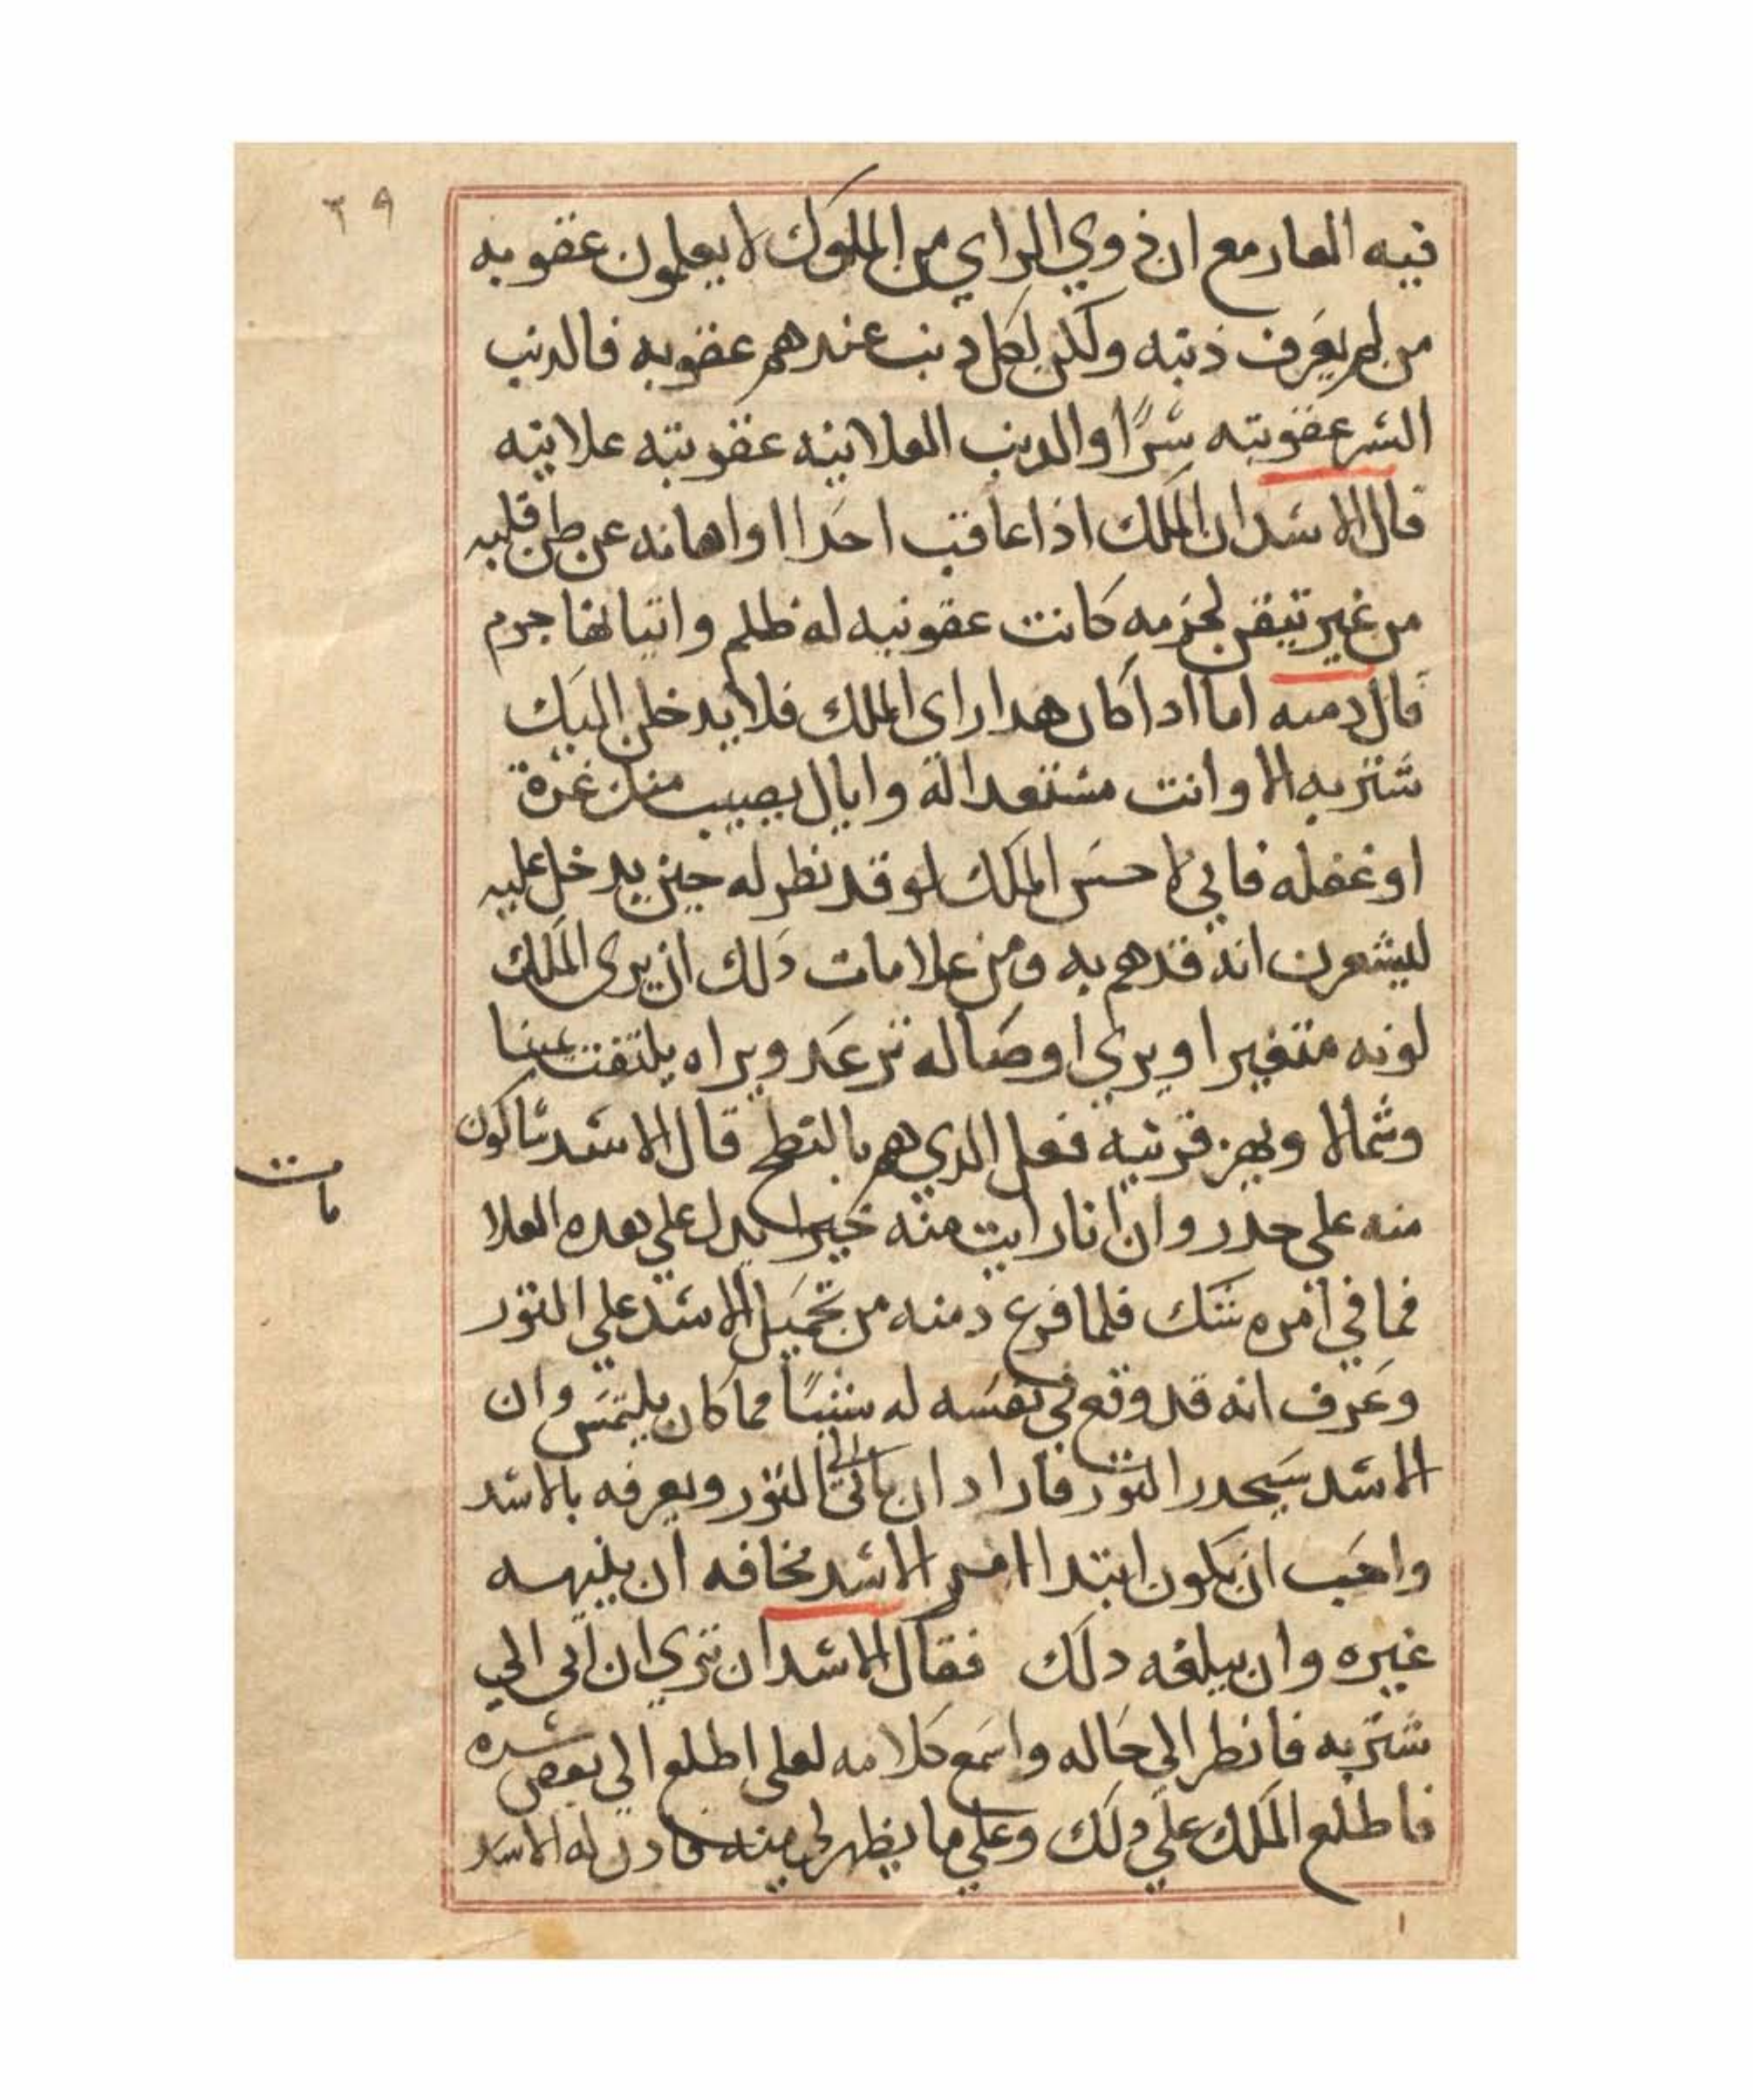 ٣٩
فيه العار مع ان ذوي الراي من الملوك لا يعلمون عقوبه
من لم يعرف ذنبه ولكن لكل ذنب عندهم عقوبه فالدنب
السر عقوبته سرًا والدنب العلانيه عقوبته علانيه
قال الاسد ان الملك اذا عاقب احدا او اهانه عن ظن قلبه
من غير تيقن لجرمه كانت عقوبيه له ظلم واتيانها جرم
قال دمنه اما ادا كان هدا راي الملك فلا يدخلن اليك
شتربه الا وانت مستعدا له وايال يصيب منك غرة
او غفله فاني لا حسَ الملك لو قد نظر له حين يدخل عليه
ليشعرن انه قد هم به ومن علامات دلك ان يرى الملك
لونه متغيرا ويري اوصاله ترعد ويراه يلتفت عينا
وشمالا ويهز قرنيه فعل الدي هم بالنطح قال الاسد ساكون
منه على حدر وان انا رايت منه خيرا يدل علي بعده العلا
مات
فما في امره شك فلما فرغ دمنه من تحميل الاسد علي الثور
وعرف انه قد وقع في نفسه له شيئًا مما كان يلتمس وان
الاسد سيحدر الثور فاراد ان ياتي الى الثور ويعرفه بالاسد
واحب ان يكون ابتدا امر الاسد مخافه ان ينبهه
غيره وان يبلغه دلك فقال الاسد ان تري ان اتي الي
شتربه فانظر الى حاله واسمع كلامه لعلي اطلع الي بعض سره
فاطلع الملك علي دلك وعلي ما يظهر لي منه فادن له الاسد